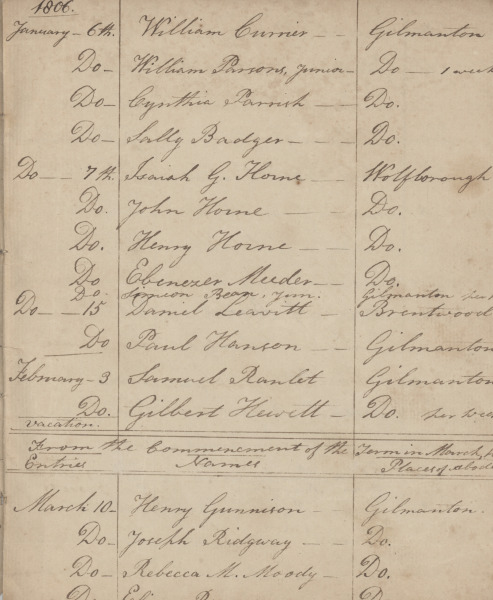 1806.
January - 6th. William Currier - - Gilmanton
Do - William Parsons, Junior - Do - 1 week
Do - Cynthia Parrish - - Do.
Do - Sally Badger - - - Do.
Do - 7th. Isaiah G. Horne - - Wolfborough
Do. John Horne - - Do.
Do. Henry Horne - - Do.
Do Ebenezer Meeder - - Do.
Do. Simeon Bean, Jun. Gilmanton
Do - 15 Daniel Leavitt - Brentwood
Do Paul Hanson - - Gilmanton
February - 3 Samuel Ranlet Gilmanton
Do. Gilbert Hewett - Do.
vacation.
From the Commencement of the Term in March,
Entries Names Places of abode
March 10 - Henry Gunnison - Gilmanton.
Do - Joseph Ridgway - - Do.
Do - Rebecca M. Moody - Do.
Do